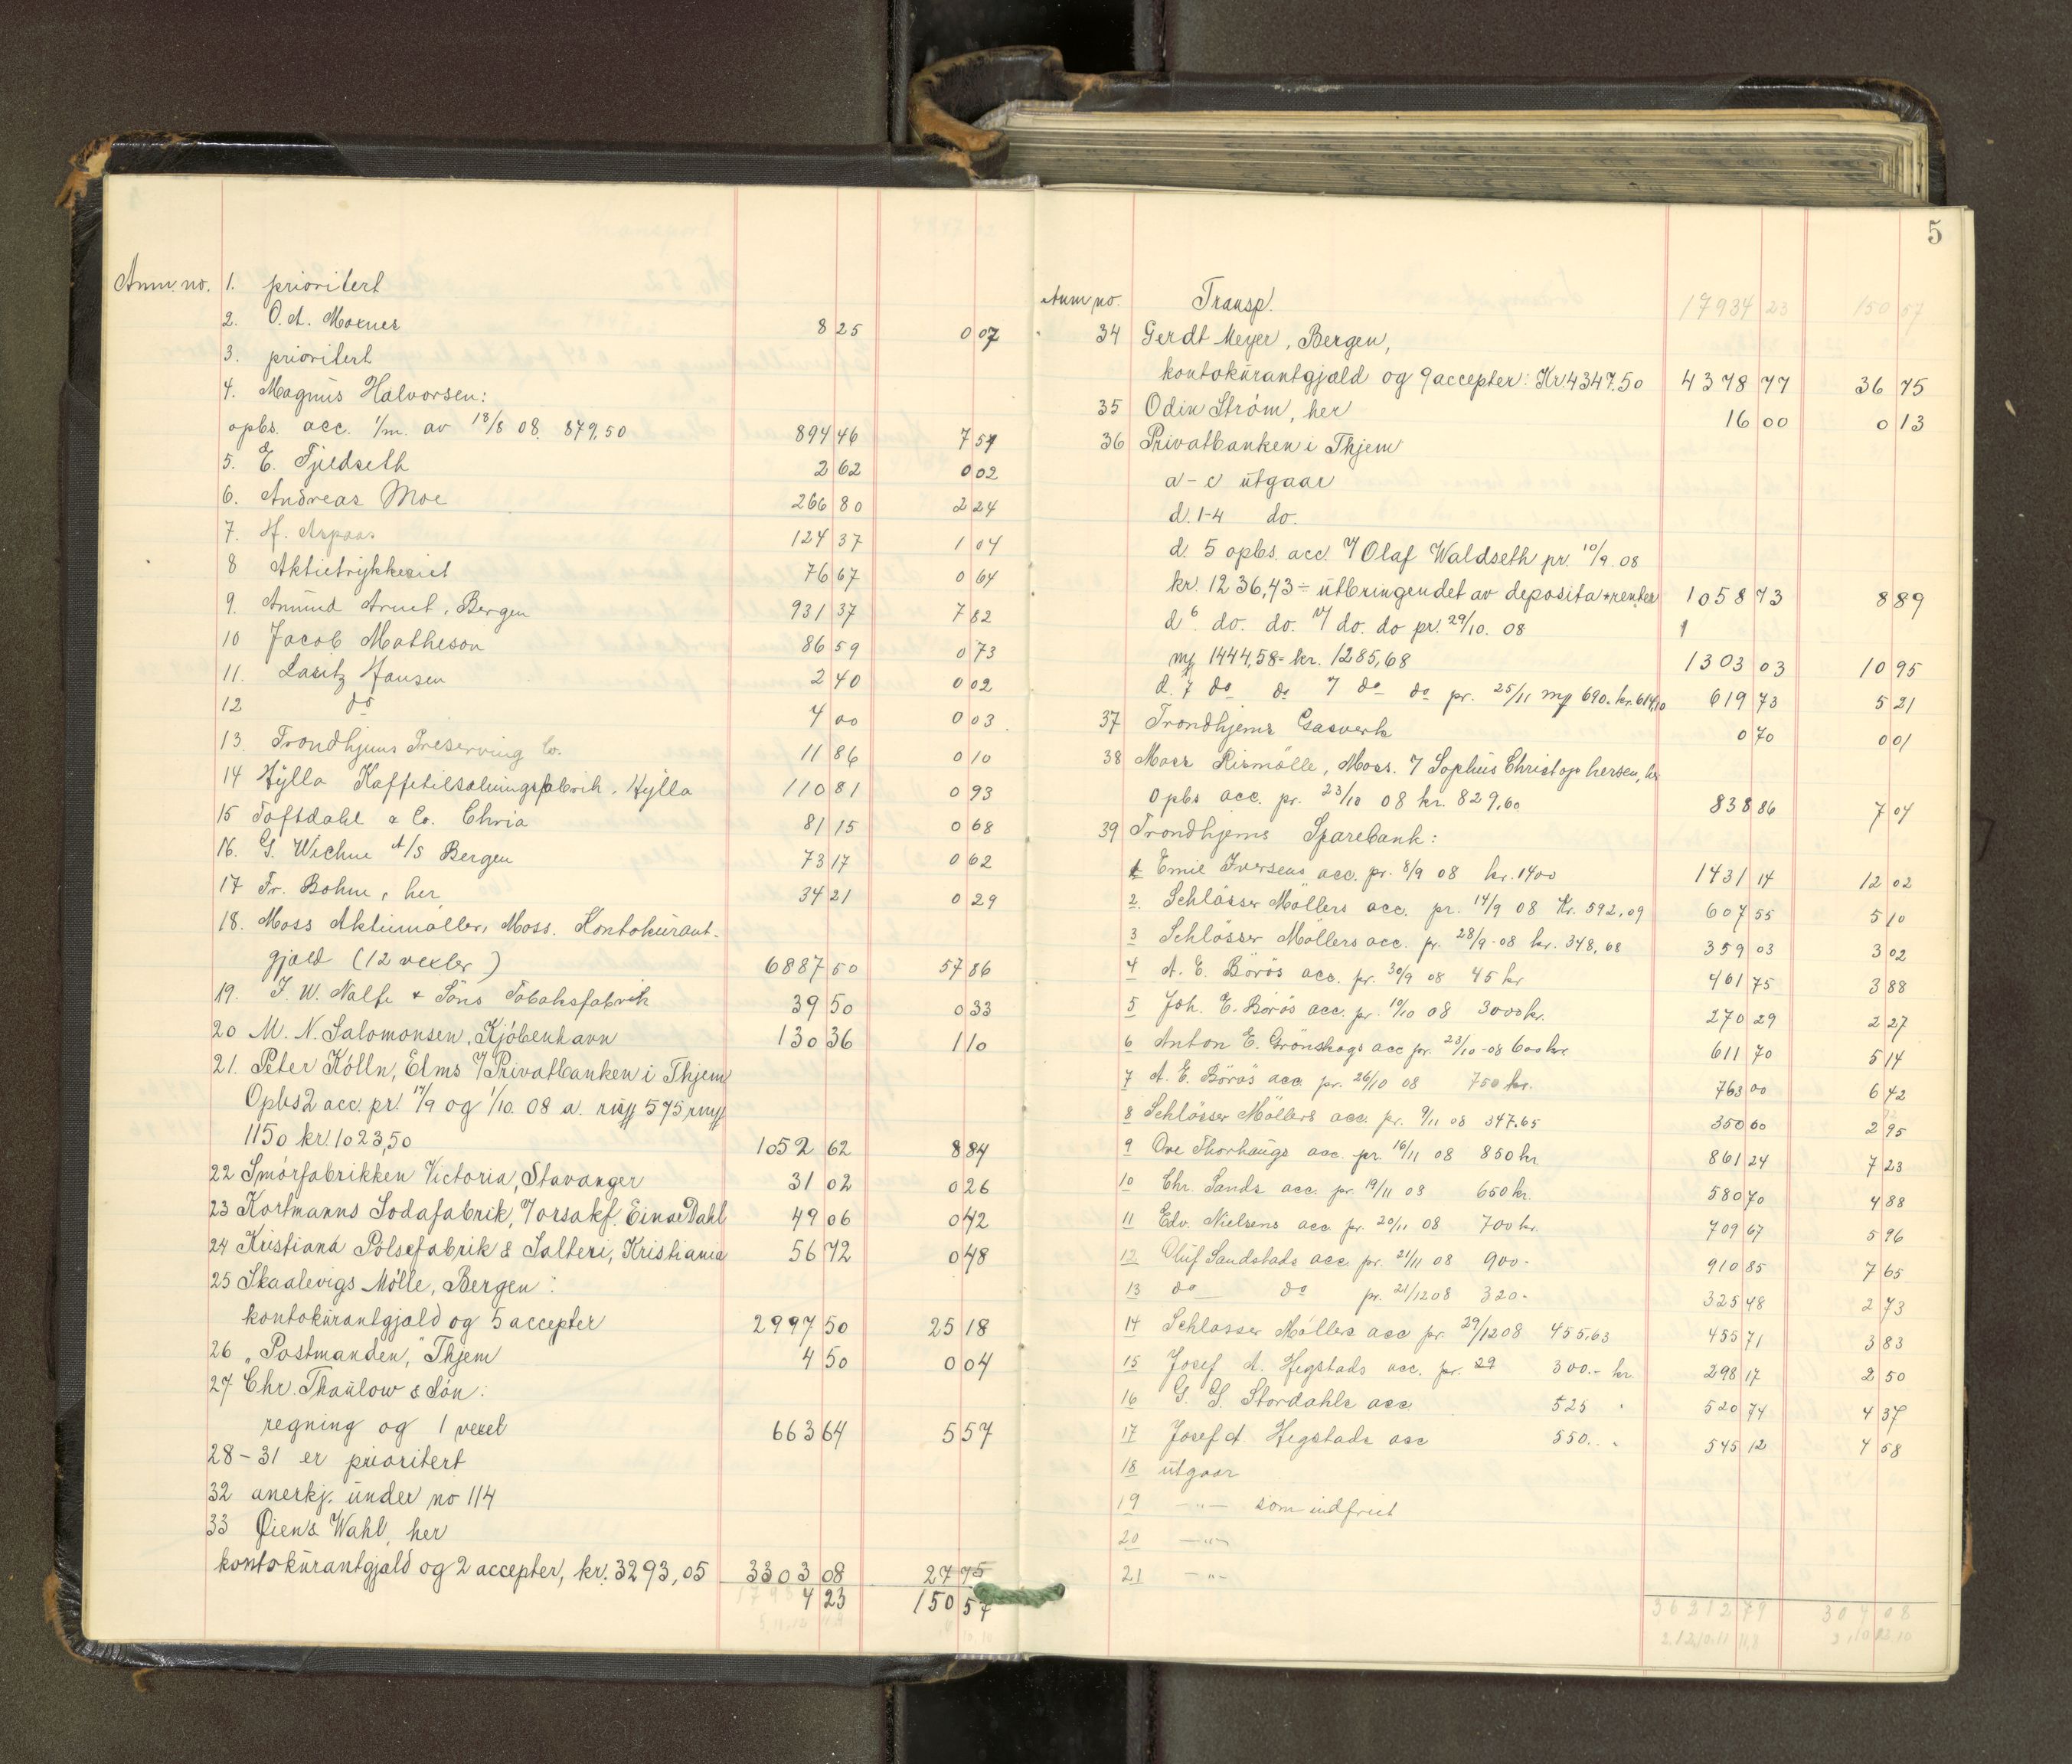 Anm. no. 1. prioritert
2. O. A. Moxnes 8 25 0 07
3. prioritert
4. Magnus Halvorsen:
opbs. acc. 1/m. av 18/8 08. 879,50 894 46 7 51
5. E. Fjeldseth 2 62 0 02
6. Andreas Moe 266 80 2 24
7. H. Aspaas 124 37 1 04
8 Aktietrykkeriet 76 67 0 64
9. Amund Arnet, Bergen 931 37 7 82
10 Jacob Matheson 86 59 0 73
11. Lauitz Hansen 2 40 0 02
12 do 4 00 0 03
13. Trondhjems Preserving Co. 11 86 0 10
14 Hylla Kaffetilsætningsfabrik, Hylla 110 81 0 93
15 Toftdahl & Co. Chria 81 15 0 68
16. G. Wiehne A/S Bergen 73 17 0 62
17 Fr. Bohne, her 34 21 0 29
18. Moss Aktiemøller, Moss. Kontokurant-
gjæld (12 vexler) 6887 50 57 86
19. J. W. Nalfe & Søns Tobaksfabrik 39 50 0 33
20 M. N. Salomonsen, Kjøbenhavn 130 36 1 10
21. Peter Kölln, Elms 7/ Privatbanken i Thjem
Opbs 2 acc. pr. 17/9 og 1/10. 08 a. rmk 575, rmk
1150 kr 1023,50 1052 62 8 84
22 Smörfabrikken Victoria, Stavanger 31 02 0 26
23 Kortmanns Sodafabrik, 7/ orsakf. Einar Dahl 49 06 0 42
24 Kristiana Pölsefabrik & Salteri, Kristiania 56 72 0 48
25 Skaalevigs Mölle, Bergen:
kontokurantgjæld og 5 accepter 2997 50 25 18
26 „Postmanden," Thjem 4 50 0 04
27 Chr. Thaulow & Sön:
regning og 1 vexel 663 64 5 57
28-31 er prioritert
32 anerkj. under no 114
33 Øien & Wahl, her
kontokurantgjæld og 2 accepter, kr. 3293,05 3303 08 27 75
17934 23 150 57
5
Anm no. Transp. 17934 23 150 57
34 Gerdt Meyer, Bergen,
kontokurantgjæld og 9 accepter: Kr 4347.50 4378 77 36 75
35 Odin Ström, her 16 00 0 13
36 Privatbanken i Thjem
a-c utgaar
d. 1-4 do.
d. 5 opbs. acc. 7/ Olaf Waldseth pr. 10/9. 08
kr. 1236,43 ÷ utbringendet av deposita + renter 1058 73 8 89
d 6. do. do. 7/ do. do pr. 29/10. 08
mk 1444,58 = kr. 1285,68 1303 03 10 95
d. 7 do do 7 do do pr. 25/11 mk 690. kr. 614,10 619 73 5 21
37 Trondhjems Gasverk 0 70 0 01
38 Moss Rismölle, Moss. 7 Sophus Christophersen, her
Opbs acc. pr. 23/10 08 kr. 829,60 838 86 7 04
39 Trondhjems Sparebank:
1 Emil Iversens acc. pr. 8/9 08 kr. 1400 1431 14 12 02
2. Schlösser Möllers acc. pr. 14/9 08 Kr. 592,09 607 55 5 10
3 Schlösser Möllers acc. pr. 28/9-08 kr. 348,68 359 03 3 02
4 A. E. Börös acc. pr. 30/9 08 45 kr 461 75 3 88
5 Joh. E. Börös acc. pr. 10/10 08 3000 kr. 270 29 2 27
6 Anton E. Grönskogs acc pr. 23/10-08 600 kr. 611 70 5 14
7 A. E. Börös acc. pr. 26/10 08 750 kr. 763 00 6 42
8 Schlösser Möllers acc. pr. 9/11 08 347.65 350 60 2 95
9 Ove Thorhaugs acc. pr. 16/11 08 850 kr 861 24 7 23
10 Chr. Sands acc. pr. 19/11 08 650 kr. 580 70 4 88
11 Edv. Nielsens acc pr. 20/11 08 700 kr. 709 67 5 96
12 Oluf Sandstads acc. pr. 21/11 08 900- 910 85 7 65
13 do do pr. 21/12 08 320- 325 48 2 73
14 Schlosser Möllers acc pr. 29/12 08 455,63 455 71 3 83
15 Josef A. Hegstads acc. pr. 29 300.- kr. 298 17 2 50
16 G. G. Stordahls acc 525 520 74 4 37
17 Josef A Hegstads acc 550. 545 12 4 58
18 utgaar
19 -"- som indfriet
20 -"-
21 -"-
36212 79 304 08